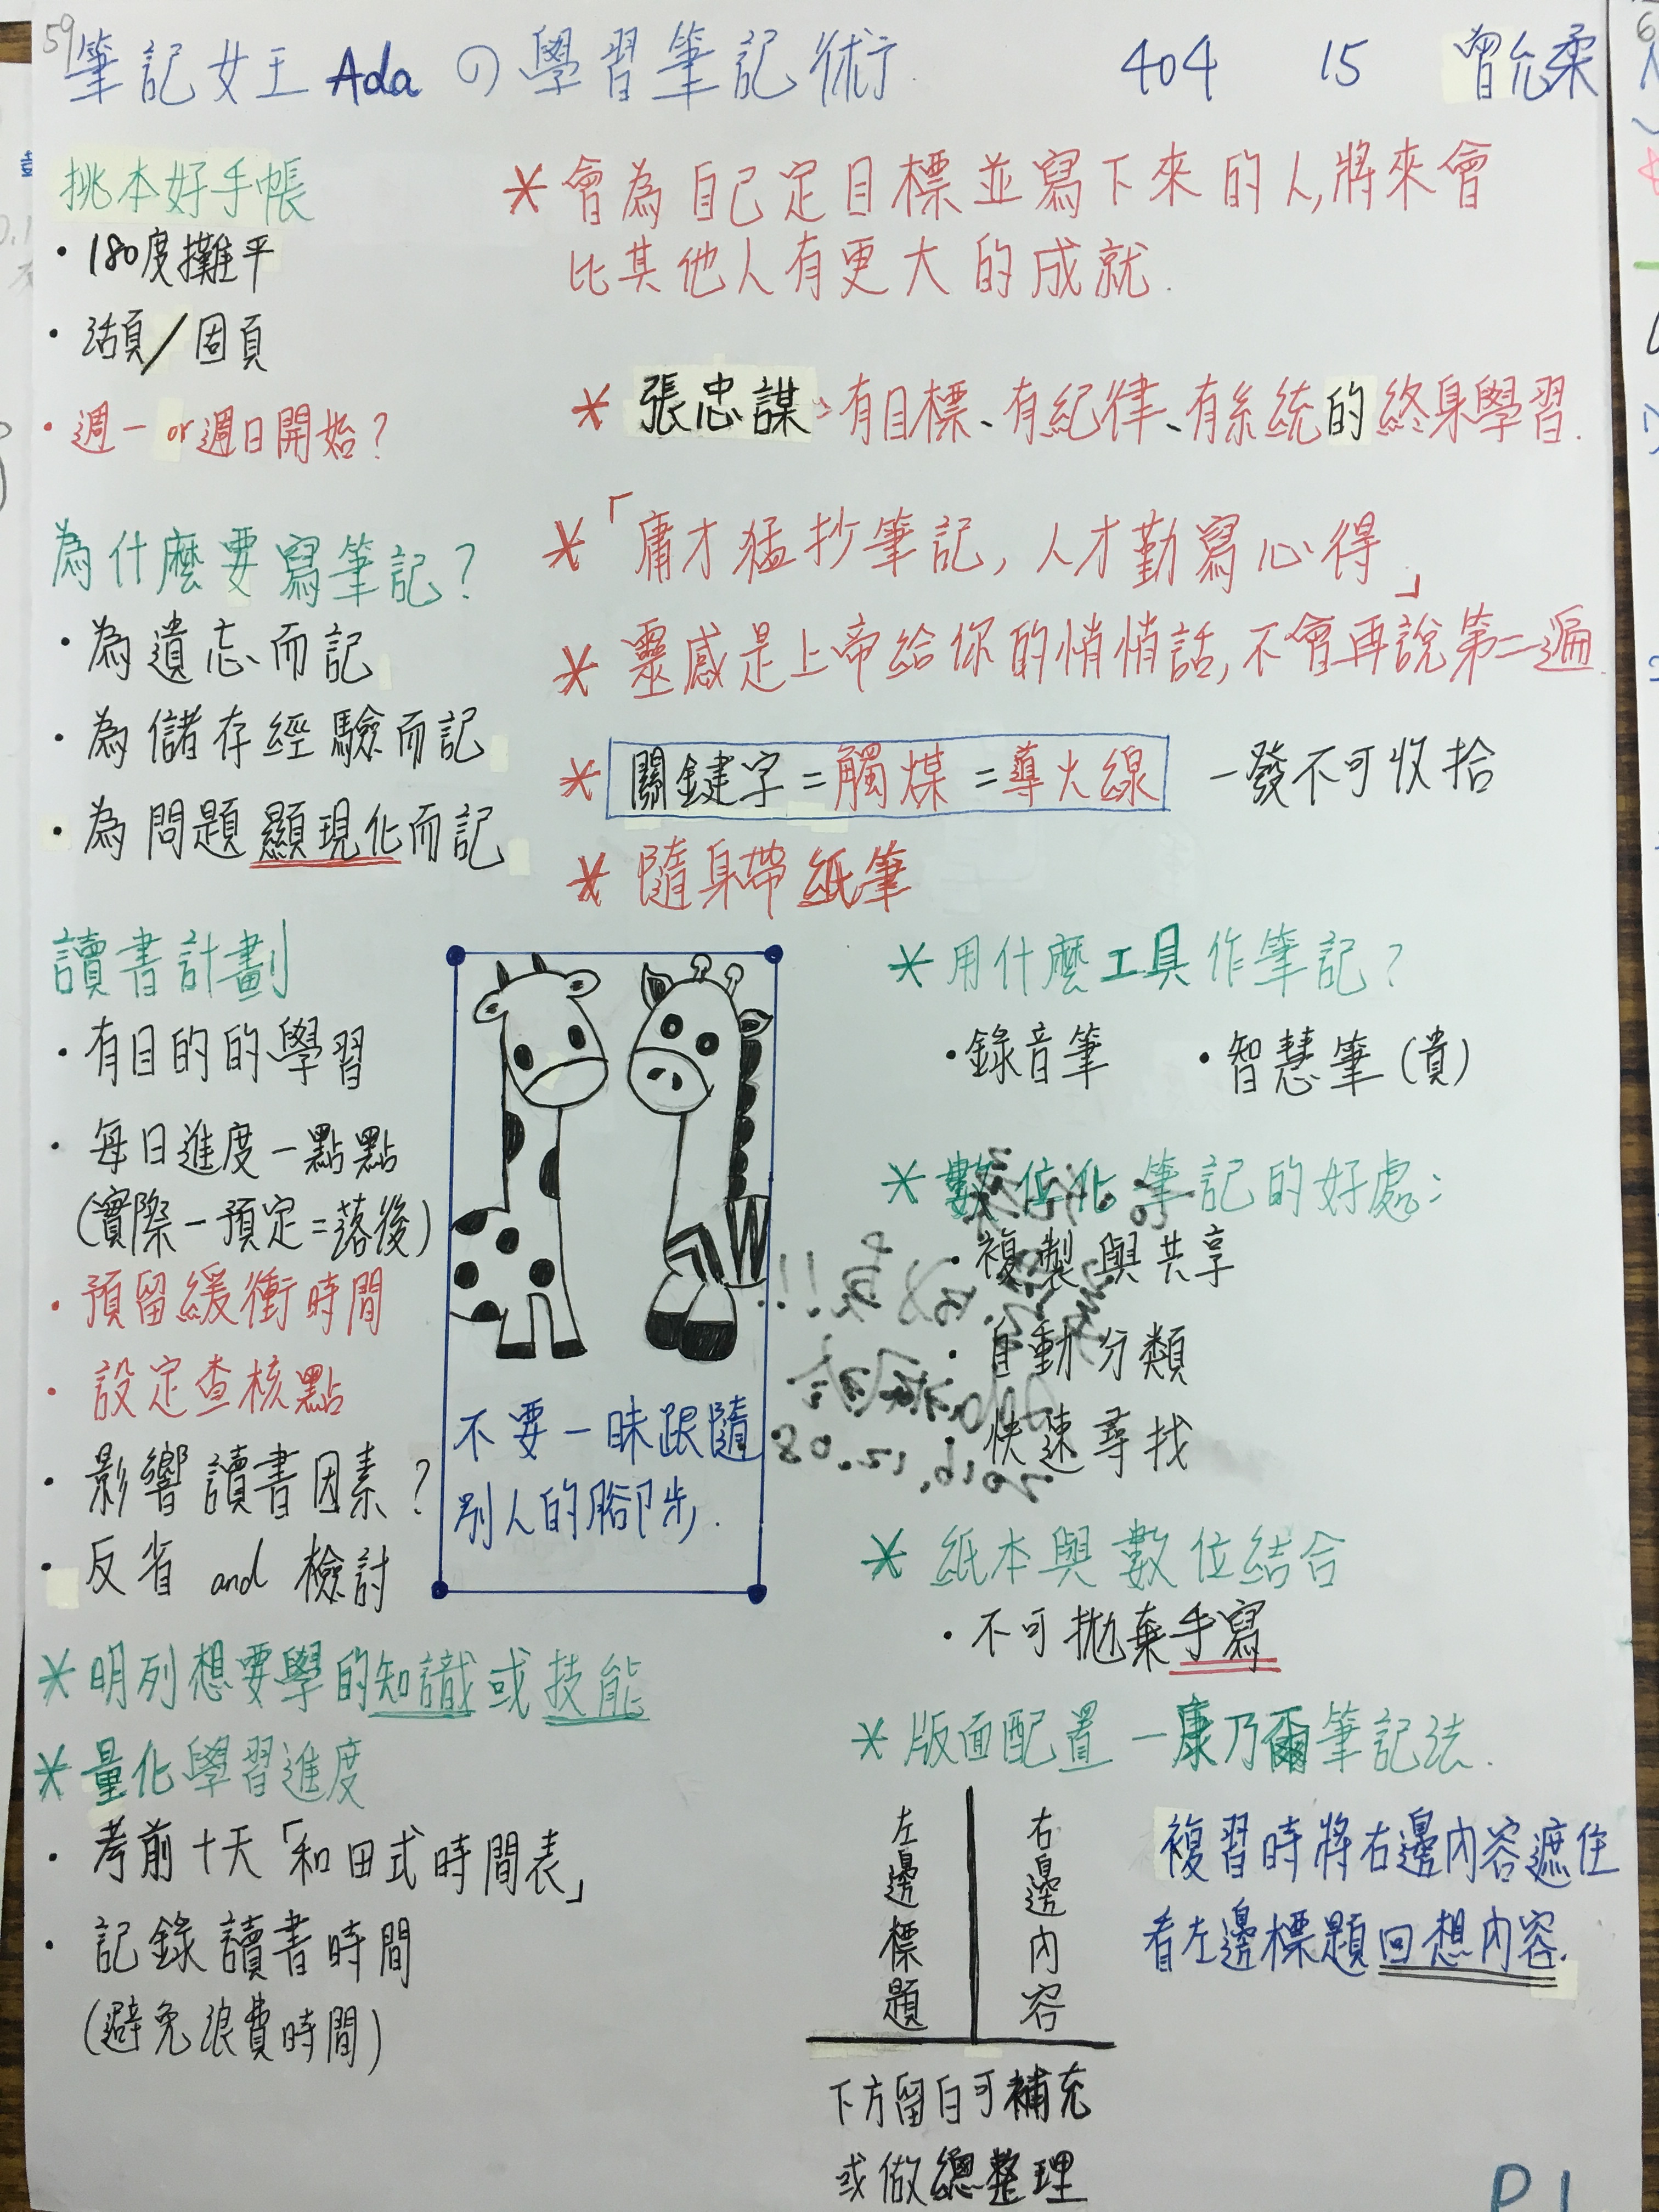 59
筆記女王Ada の 學習筆記術 404 15 曾允柔
挑本好手帳
・180度攤平
・活頁/固頁
・週一 or 週日開始?
為什麼要寫筆記?
・為遺忘而記
・為儲存經驗而記
・為問題顯現化而記
讀書計劃
・有目的的學習
・每日進度一點點
(實際-預定=落後)
・預留緩衝時間
・設定查核點
・影響讀書因素?
・反省 and 檢討
*明列想要學的知識或技能
*量化學習進度
・考前十天「和田式時間表」
・記錄讀書時間
(避免浪費時間)
*會為自己定目標並寫下來的人,將來會
比其他人有更大的成就.
*張忠謀:有目標、有紀律、有系統的終身學習.
*「庸才猛抄筆記,人才勤寫心得」
*靈感是上帝給你的悄悄話,不會再說第二遍.
*關鍵字=觸媒=導火線 一發不可收拾
*隨身帶紙筆
不要一昧跟隨
別人的腳步.
*用什麼工具作筆記?
・錄音筆 ・智慧筆(貴)
*數位化筆記的好處:
・複製與共享
・自動分類
・快速尋找
2016.12.08
*紙本與數位結合
・不可拋棄手寫
*版面配置-康乃爾筆記法.
左邊標題
右邊內容
複習時將右邊內容遮住
看左邊標題回想內容.
下方留白可補充
或做總整理
P1